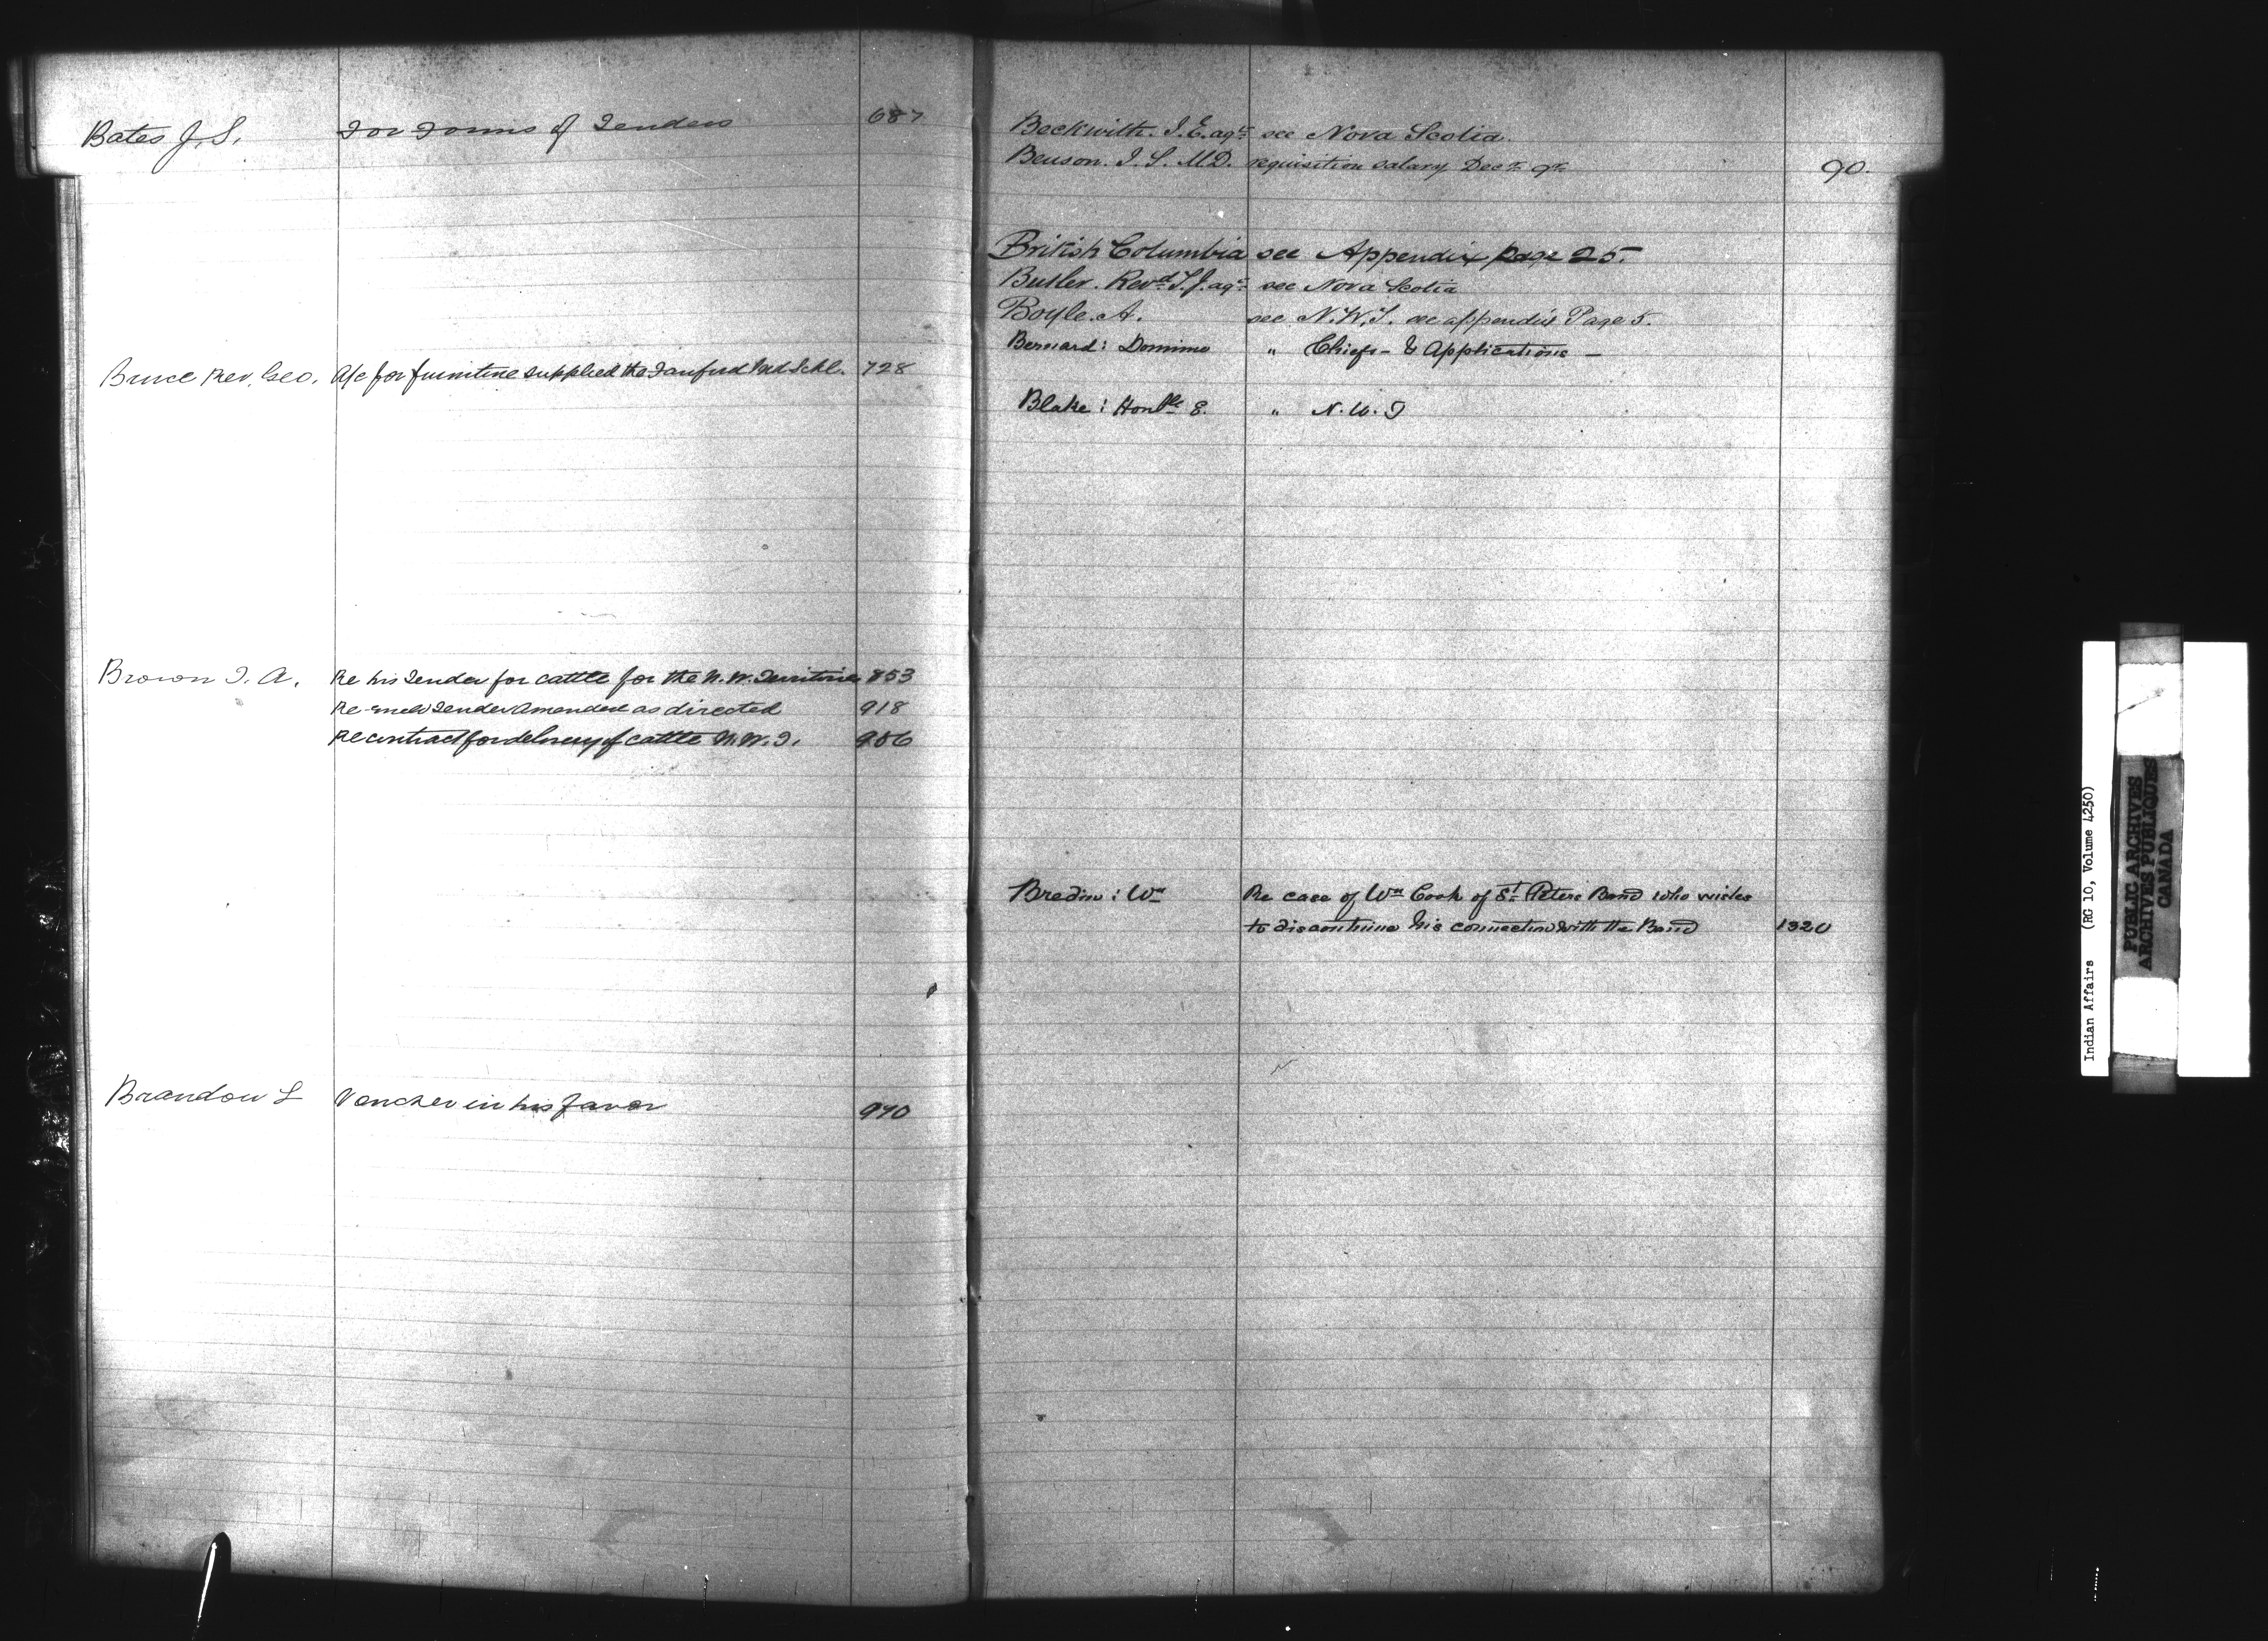 Bates J. S. For Forms of Tenders 687
Bruce Rev. Geo. A/c for furniture supplied the Sanford Ind. Schl. 728
Brown J. A. Re his Tender for cattle for the N. W. Territories 853
Re Tender Amended as directed 918
Re contract for delivery of cattle N. W. T. 956
Brandon L Voucher in his favor 970
Beckwith. J. E. agt. see Nova Scotia.
Benson. J. S. M.D. requisition salary Decr. qr. 90.
British Columbia see Appendix page 25.
Butler. Revd. T. J. agt. see Nova Scotia
Boyle. A. see N. W. T. see appendix Page 5.
Bernard: Domino " Chiefs - & Applications -
Blake: Honble E. " N. W. T
Bredin: Wm Re case of Wm Cook of St. Peters Band who wishes
to discontinue his connection with the Band 1320
Indian Affairs (RG 10, Volume 4250)
PUBLIC ARCHIVES
ARCHIVES PUBLIQUES
CANADA